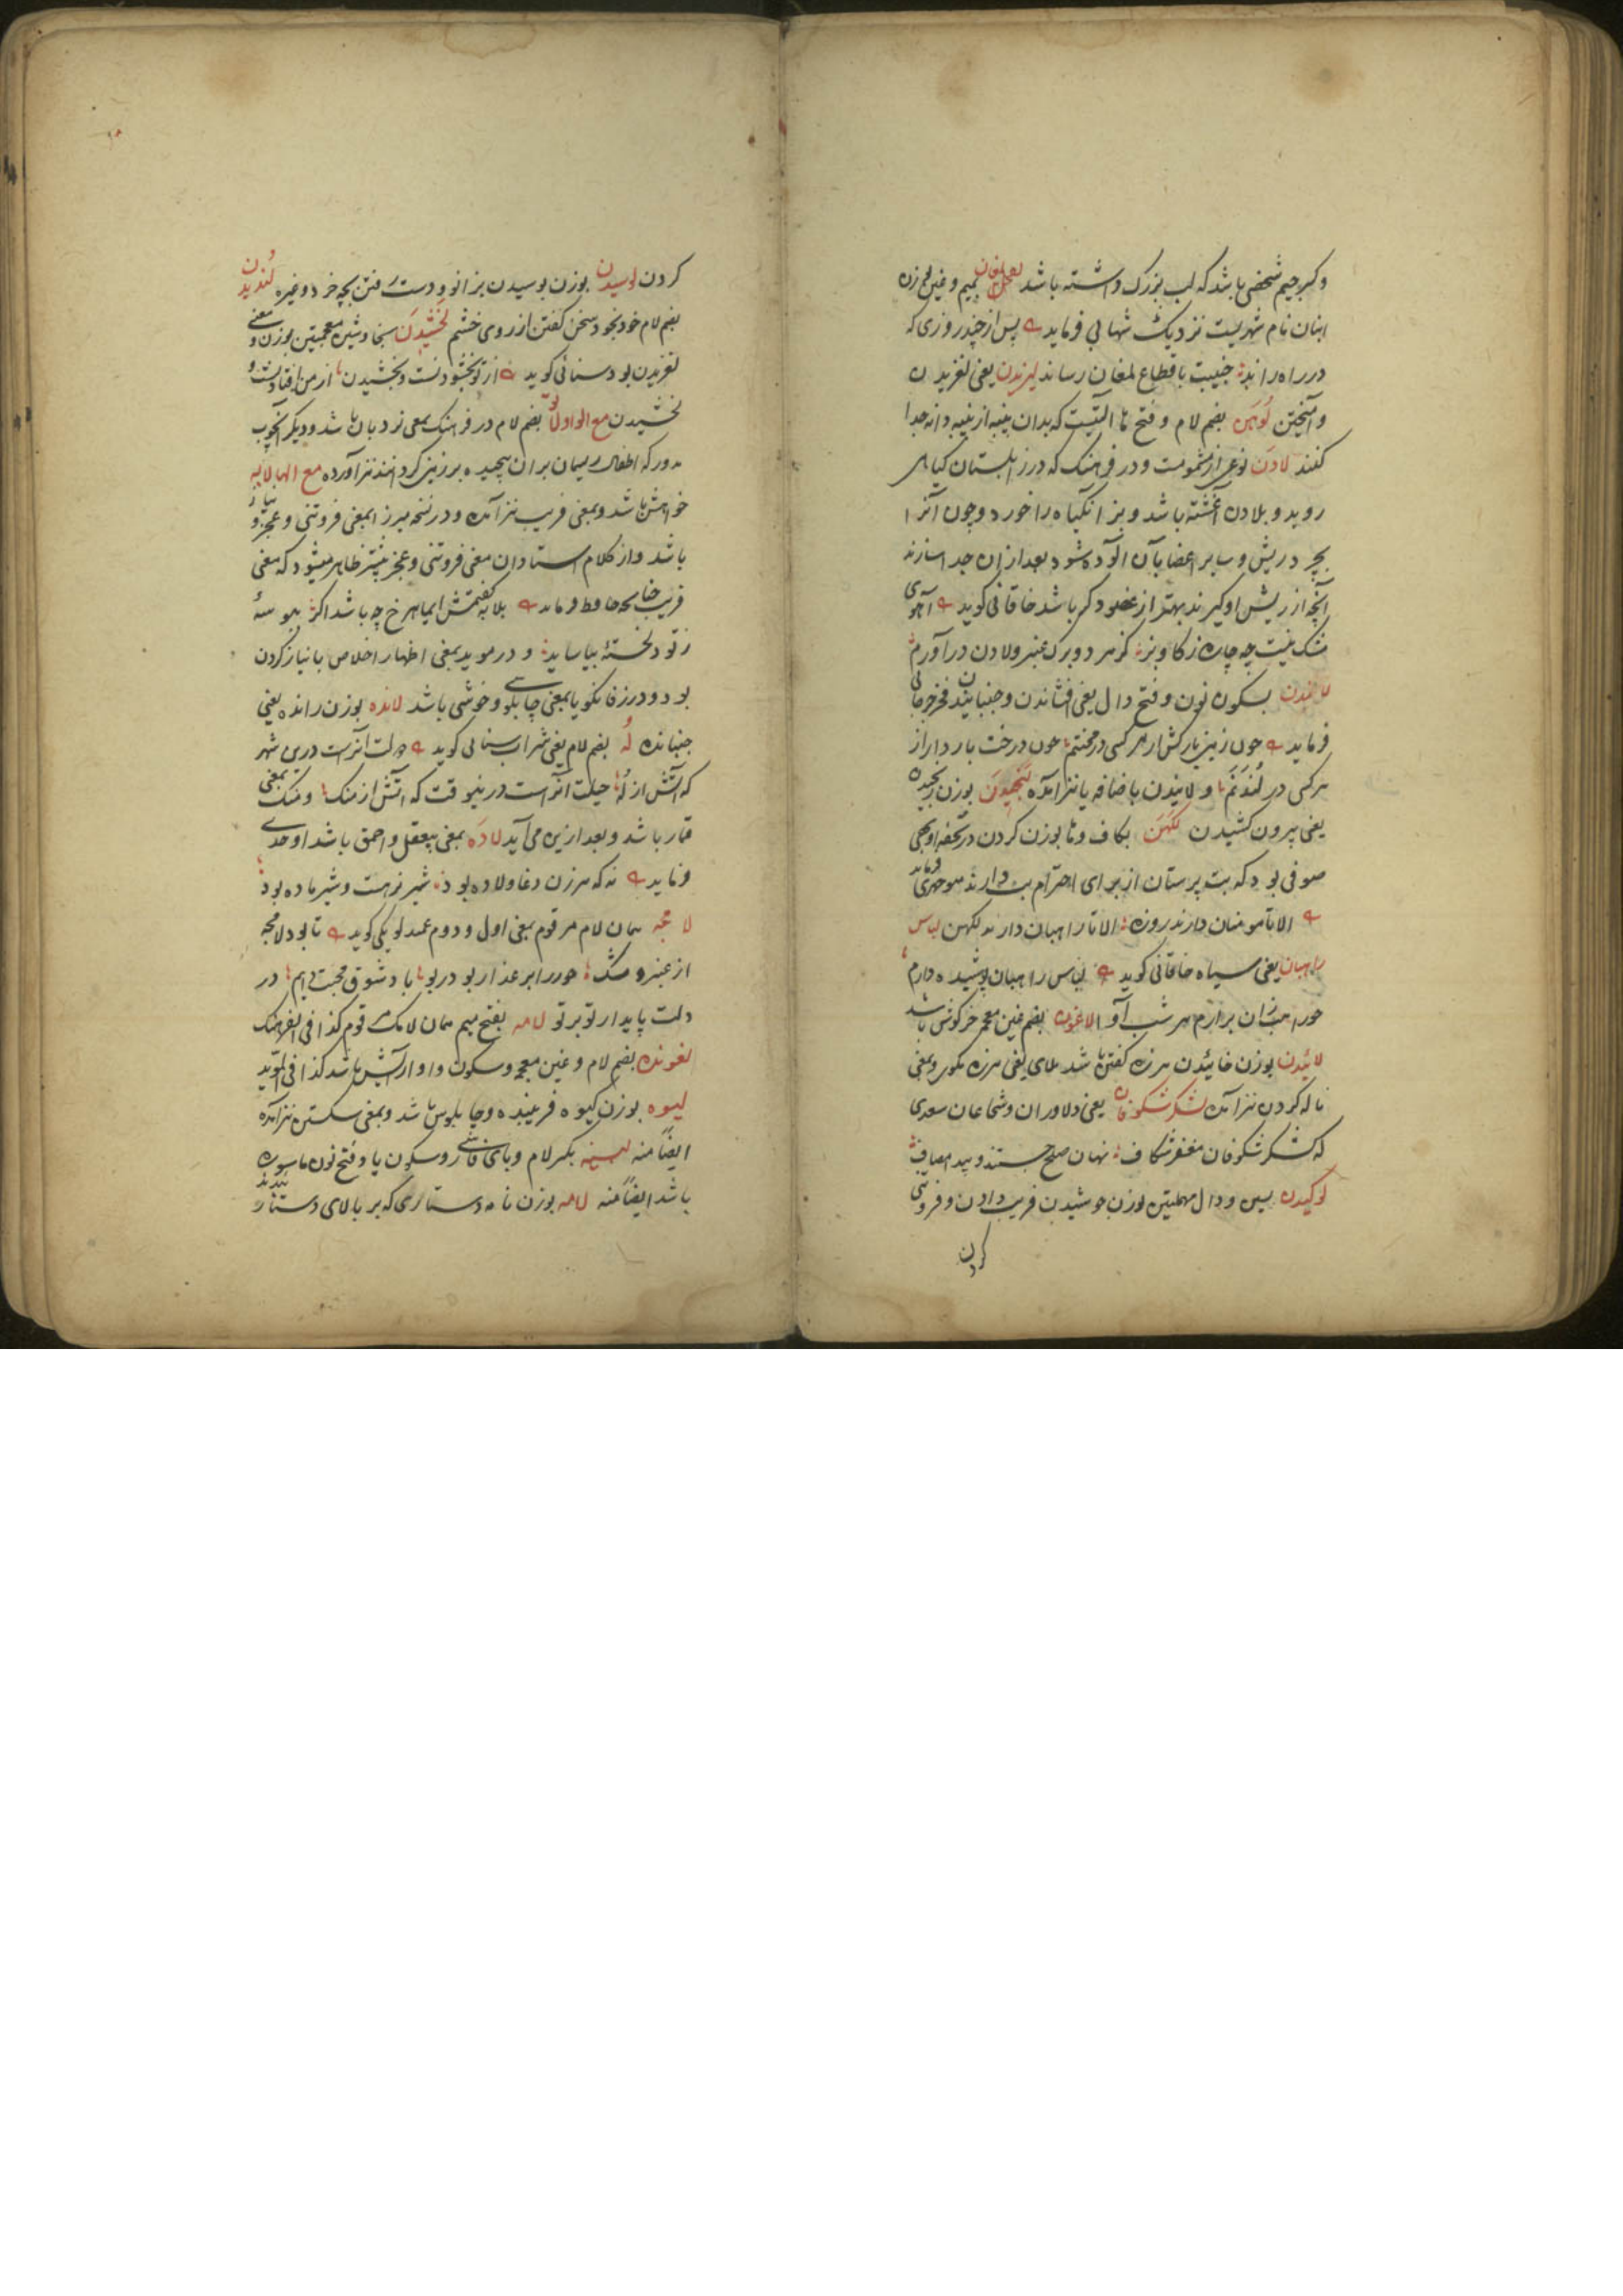 و کبر جیم شخصی باشد که لب بزرک داشته باشد لمغان بمیم و غین بوزن
ابنان نام شهریست نزدیک شهابی فرماید پس از چند روزی که
در راه راند جنیبت باقطاع لمغان رساند لیزیدن یعنی لغزیدن
و آمیختن لوهن بضم لام و فتح ها آلتیست که بدان پنبه از پنبه دانه جدا
کنند لادن نوعی از مشمومست و در فرهنک که در زابلستان کیاهی
روید و بلادن آغشته باشد و بز انکیاه را خورد و چون آنرا
بچرد ریش و سایر اعضا بآن آلوده شود بعد ازان جدا سازند
آنچه از ریش او کیرند بهتر از عضو دیکر باشد خاقانی کوید آهوی
مشک نیست چه چاره ز کاو و بز کز هر دو برک عنبر و لادن درآورم
لاندن بسکون نون و فتح دال یعنی افشاندن و جنبانیدن فخر جرجانی
فرماید چون زمین بارکش از هر کسی در محنتم چون درخت باردار از
هر کسی در لندنم و لانیدن باضافه یا نیز آمده لنجیدن بوزن رنجیدن
یعنی بیرون کشیدن لکهن بکاف و ها بوزن کردن در تحفه اوبهی
صوفی بود که بت پرستان از برای احترام بت دارند منوچهری فرماید
الا تا مومنان دارند روزه الا تا راهبان دارند لکهن لباس
راهبان یعنی سیاه خاقانی کوید لباس راهبان پوشیده دارم
چو راهب زان برآرم هر شب آوا لاغون بضم غین معجمه خرکوش باشد
لائیدن بوزن خائیدن هرزه کفتن باشد ملای یعنی هرزه مکوی و بمعنی
ناله کردن نیز آمده لشکر شکوفان یعنی دلاوران و شجاعان سعدی
که لشکر شکوفان مغفر شکاف نهان صلح جستند و پیدا مصاف
لوکیدن بسین و دال مهملتین بوزن جوشیدن فریب دادن و فروتنی
کردن
کردن لوسیدن بوزن بوسیدن بزانو و دست رفتن بچه خرد و غیره لندیدن
بضم لام خود بخود سخن کفتن از روی خشم لخشیدن بخا و شین معجمتین بوزن و معنی
لغزیدن بود سنائی کوید از تو بخشودنست و بخشیدن از من افتادنست و
لخشیدن مع الواو لو بضم لام در فرهنک بمعنی نردبان باشد و دیکر آنچوب
مدور که اطفال ریسمان بران پیچیده بر زمین کردانند نیز آورده مع الها لابه
خواهش باشد و بمعنی فریب نیز آمده و در نسخه میرزا بمعنی فروتنی و عجز و نیاز
باشد و از کلام استادان معنی فروتنی و عجز بیشتر ظاهر میشود که معنی
فریب چنانچه حافظ فرماید بلابه کفتمش ای ماهرخ چه باشد اکر بیوسهٔ
ز تو دلخستهٔ بیاساید و در موید بمعنی اظهار اخلاص با نیاز کردن
بود و در زفانکویا بمعنی چابلوسی و خوشی باشد لانده بوزن رانده یعنی
جنبانده له بضم لام یعنی شراب سنائی کوید دولت آنراست درین شهر
که آتش از له حیلت آنراست درینوقت که آتش از منک و منک بمعنی
قمار باشد و بعد ازین می آید لاده بمعنی بیعقل و احمق باشد اوحدی
فرماید نه که هر زن دغا و لاده بود شیر نر هست و شیر ماده بود
لامچه همان لام مرقوم بمعنی اول و دوم عمید لویکی کوید تا بود لامچه
از عنبر و مشک حور را بر عذار بود ربوا باد شوق محبت دایم در
دلت پایدار تو بر تو لامه بفتح میم همان لامک مرقوم کذا فی الفرهنک
لغونه بضم لام و غین معجمه و سکون واو آرایش باشد کذا فی المؤید
لیوه بوزن کیوه فریبنده و چابلوس باشد و بمعنی سکسته نیز آمده
ایضاً منه لبینه بکسر لام و بای فارسی و سکون یا و فتح نون ماسوره
باشد ایضاً منه لامه بوزن نامه دستاری که بر بالای دستار بندند